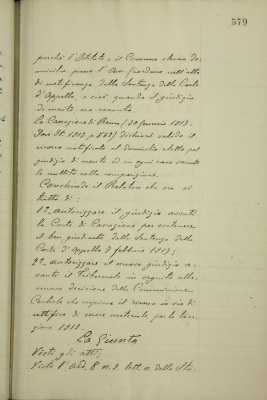 579
perchè l'Istituto e il Comune elesse do-
micilio presso l'Avv. Giordano nell'atto
di notificanza della Sentenza della Corte
d'Appello, e cioè, quando il giudizio
di merito, era esaurito.
La Cassazione di Roma (30 Gennaio 1919.
Foro It. 1919 p. ) dichiarò valido il
ricorso notificato al domicilio eletto pel
giudizio di merito ed in ogni caso sanata
la nullità colla comparizione.
Conchiude il Relatore che ora si
tratta di:
1° autorizzare il giudizio avanti
la Corte di Cassazione per sostenere
il ben giudicato della Sentenza della
Corte d'Appello 7 febbraio 1919;
2° autorizzare il nuovo giudizio a-
vanti il Tribunale in seguito alla
nuova decisione della Commissione
Centrale che respinse il ricorso in via di
rettifica di errore materiale per la
1918.
La Giunta
Visti gli atti;
Visto l'Art. 8 n. 2 lett. a dello Sta-